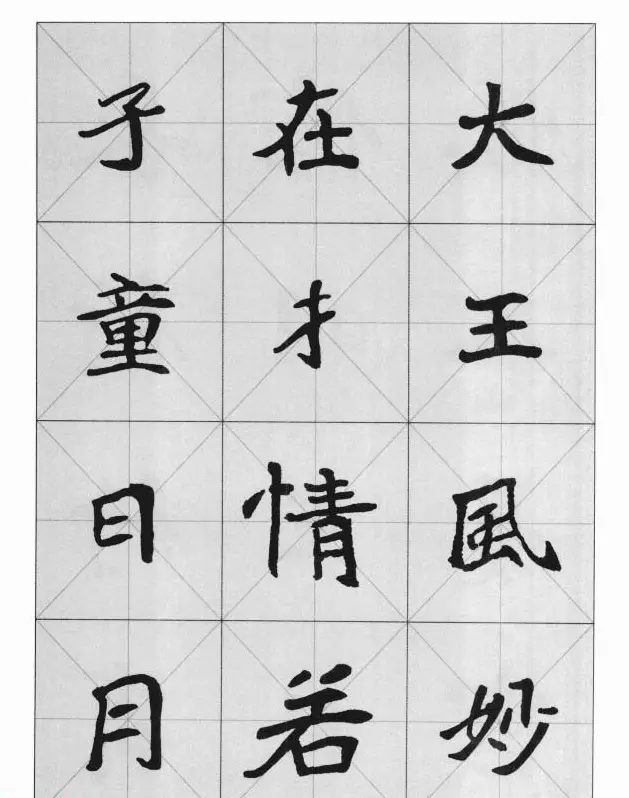 大王風妙
在才情若
子童日月